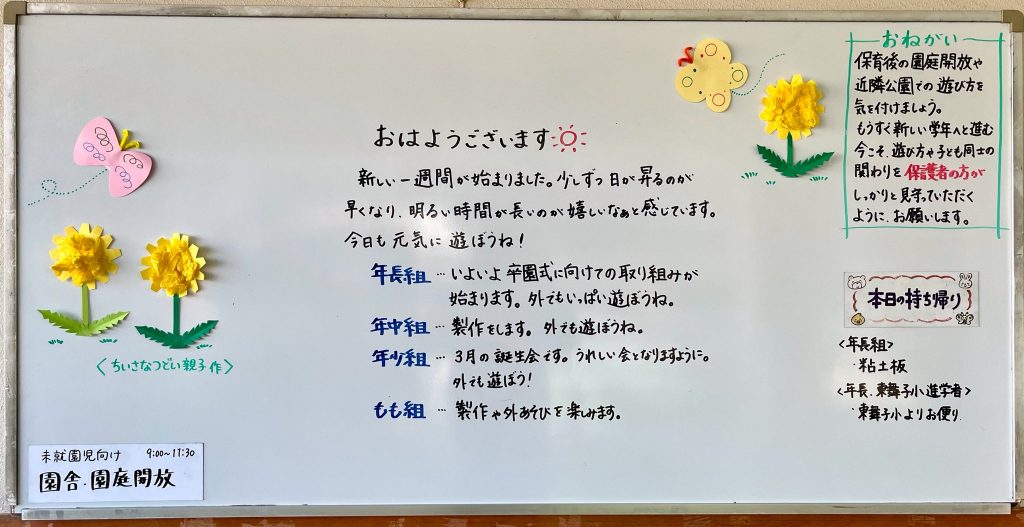 おはようございます
新しい一週間が始まりました。少しずつ日が昇るのが
早くなり、明るい時間が長いのが嬉しいなぁと感じています。
今日も元気に遊ぼうね!
年長組…いよいよ卒園式に向けての取り組みが
始まります。外でもいっぱい遊ぼうね。
年中組…製作をします。外でも遊ぼうね。
年少組…3月の誕生会です。うれしい会となりますように。
外でも遊ぼう!
もも組…製作や外あそびを楽しみます。
おねがい
保育後の園庭開放や
近隣公園での遊び方を
気を付けましょう。
もうすぐ新しい学年へと進む
今こそ、遊び方や子ども同士の
関わりを保護者の方が
しっかりと見守っていただく
ように、お願いします。
本日の持ち帰り
<年長組>
・粘土板
<年長、東舞子小進学者>
・東舞子小よりお便り
<ちいさなつどい親子作>
未就園児向け 9:00~11:30
園舎・園庭開放